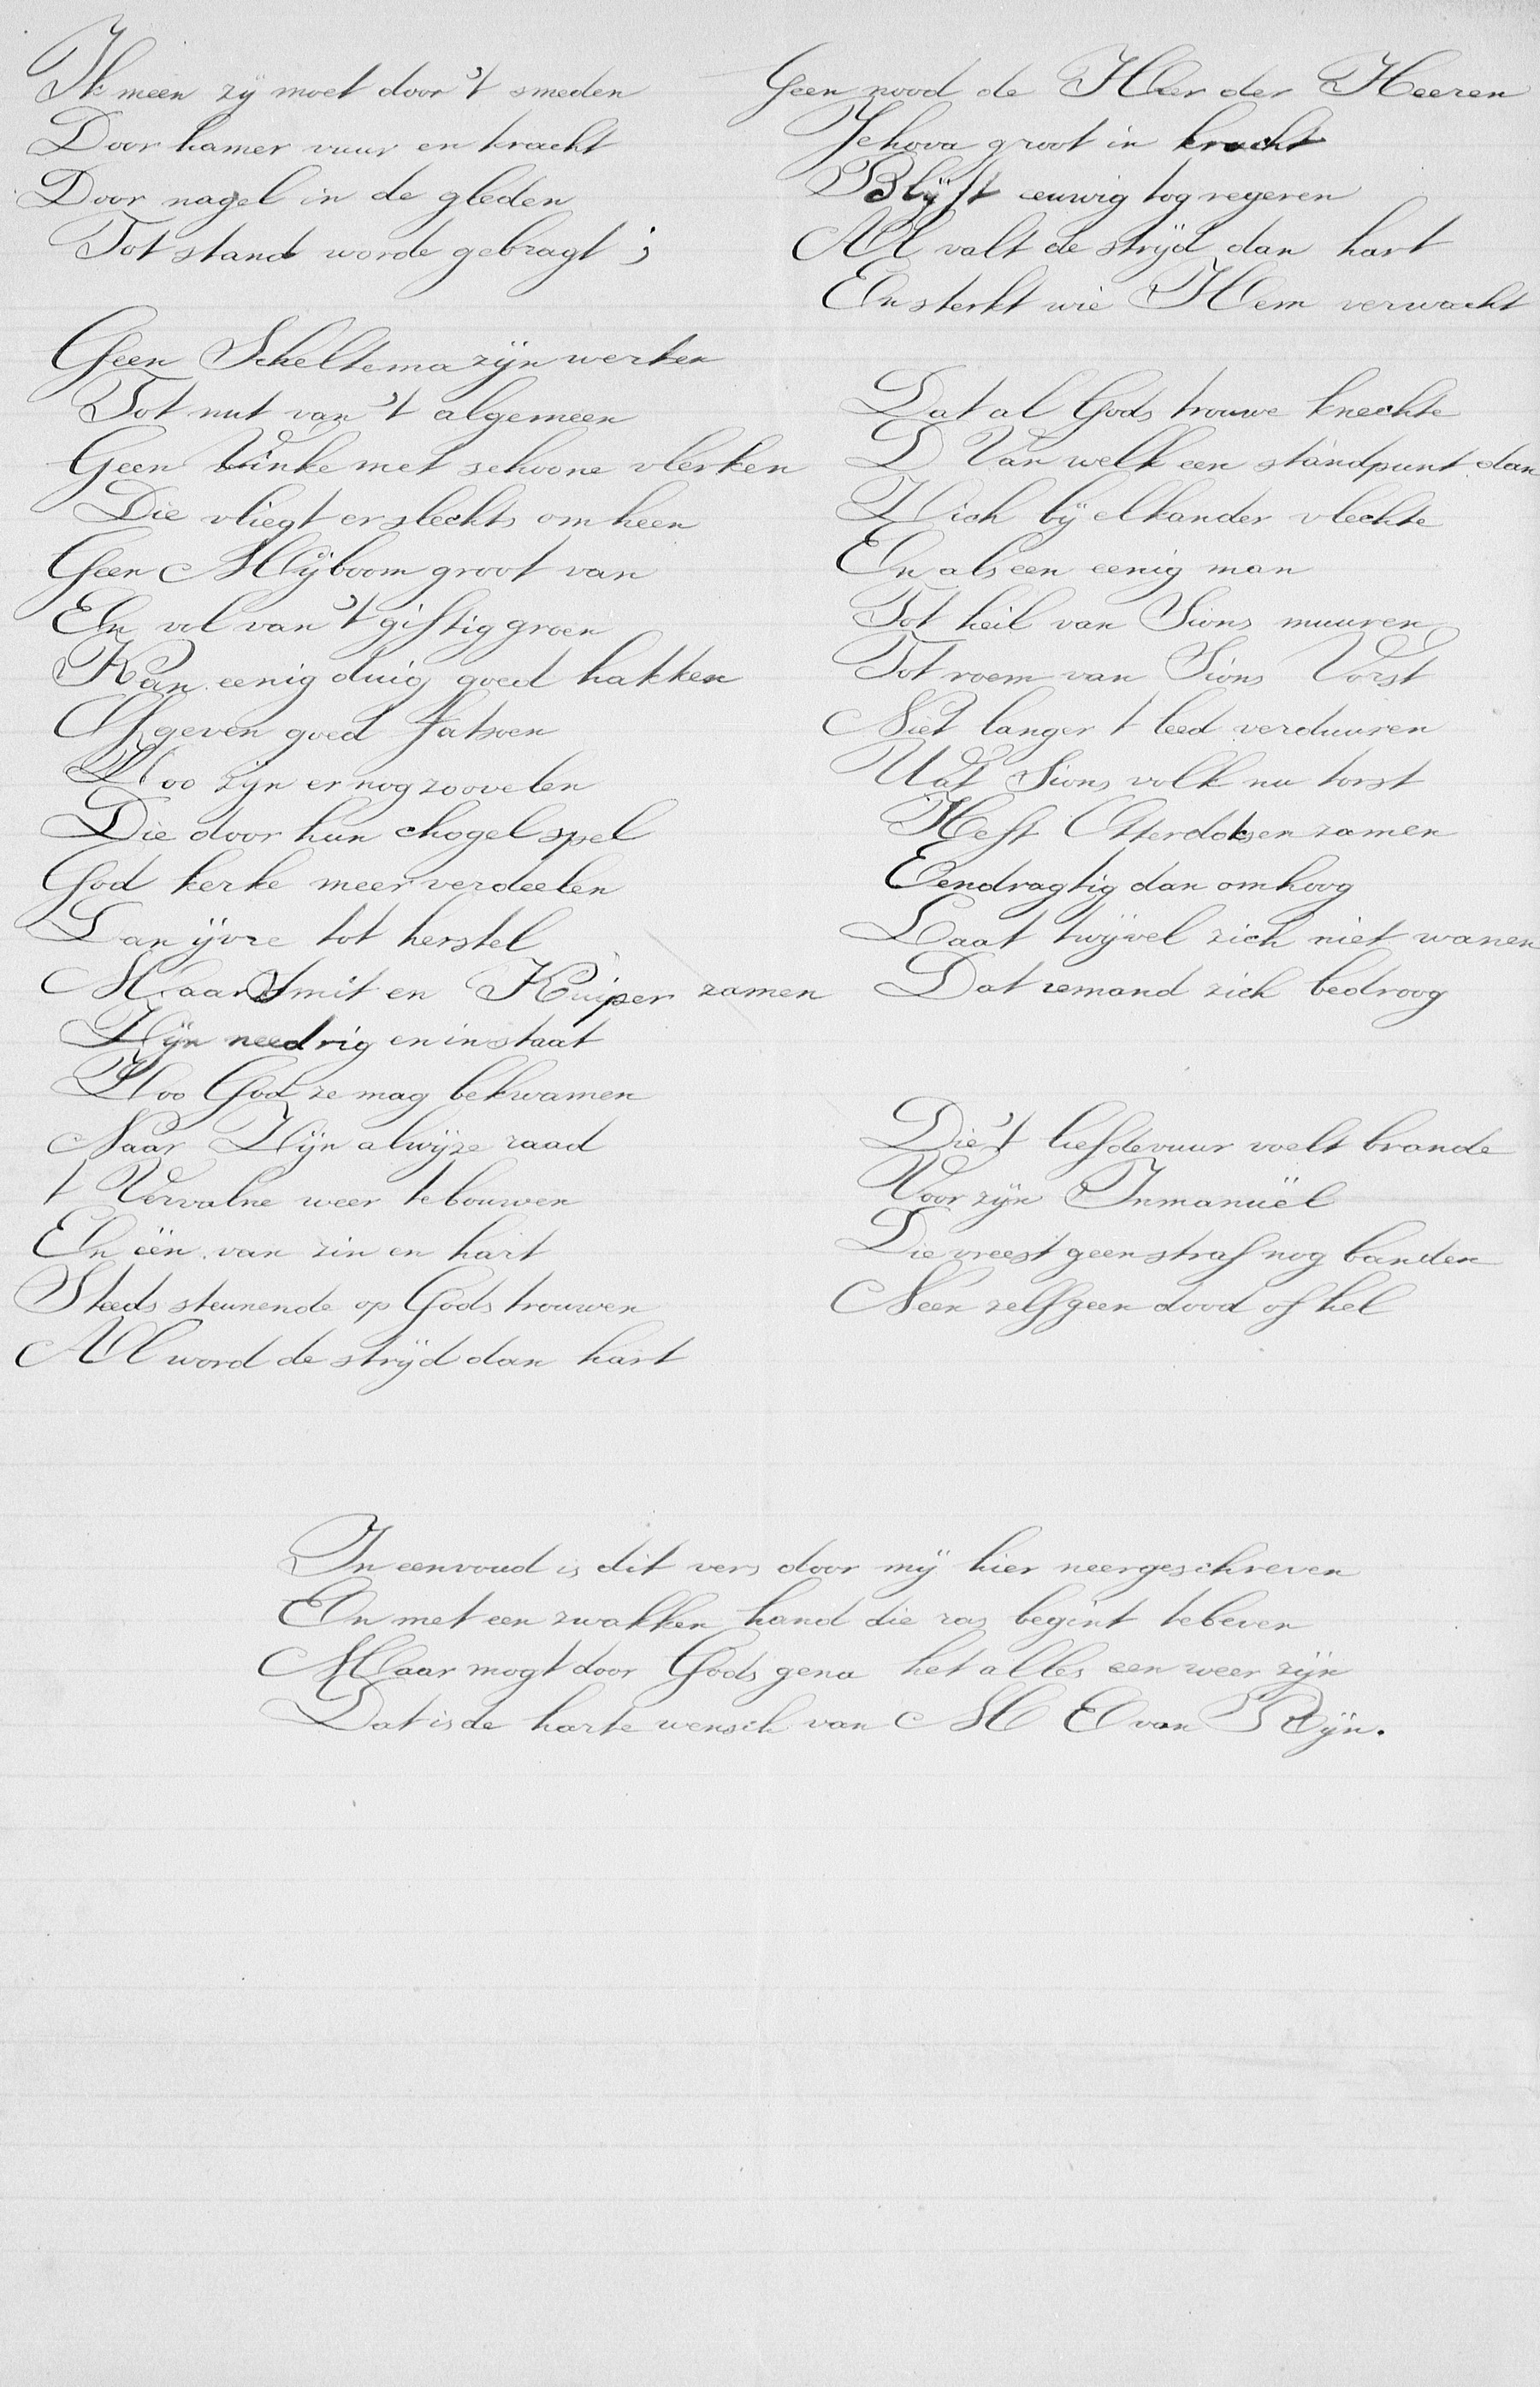 Ik meen zÿ moet door 't smeden
Door hamer vuur en kracht
Door nagel in de gleden
Tot stand worde gebragt ;
Geen Scheltema zÿn werken
Tot nut van 't algemeen
Geen Vinke met schoone vlerken
Die vliegt er slechts om heen
Geen Mÿboom groot van
En vol van 't giftig groen
Kan eenig duig goed hakken
Of geven goed fatsoen
Zoo zÿn er nog zoovelen
Die door hun chogel spel
God kerke meer verdeelen
Dan ÿvre tot herstel
Maar Smit en Kuiper zamen
Zÿn needrig en in staat
Zoo God ze mag bekwamen
Naar Zÿn alwÿze raad
t Vervalne weer te bouwen
En ëën van zin en hart
Steeds steunende op Gods trouwen
Al word de strÿd dan hart
Geen nood de Heer der Heeren
Jehova groot in kracht
Blÿft eeuwig tog regeren
Al valt de strÿd dan hart
En sterkt wie Hem verwacht
Dat al Gods trouwe knechte
D Van welk een standpunt dan
Zich bÿ elkander vlechte
En als een eenig man
Tot heil van Sions muuren
Tot roem van Sions Vorst
Niet langer t leed verduuren
Wat Sions volk nu torst
Heft Otterdoksen zamen
Eendragtig dan omhoog
Laat twÿvel zich niet wanen
Dat iemand zich bedroog
Die 't liefdevuur voelt brande
Voor zÿn Inmanüel
Die vreest geen straf nog banden
Neen zelf geen dood of hel
In eenvoud is dit vers door mÿ hier neergeschreven
En met een zwakken hand die ras begint te beven
Maar mogt door Gods gena het alles een weer zÿn
Dat is de harte wensch van M E van Rÿn.